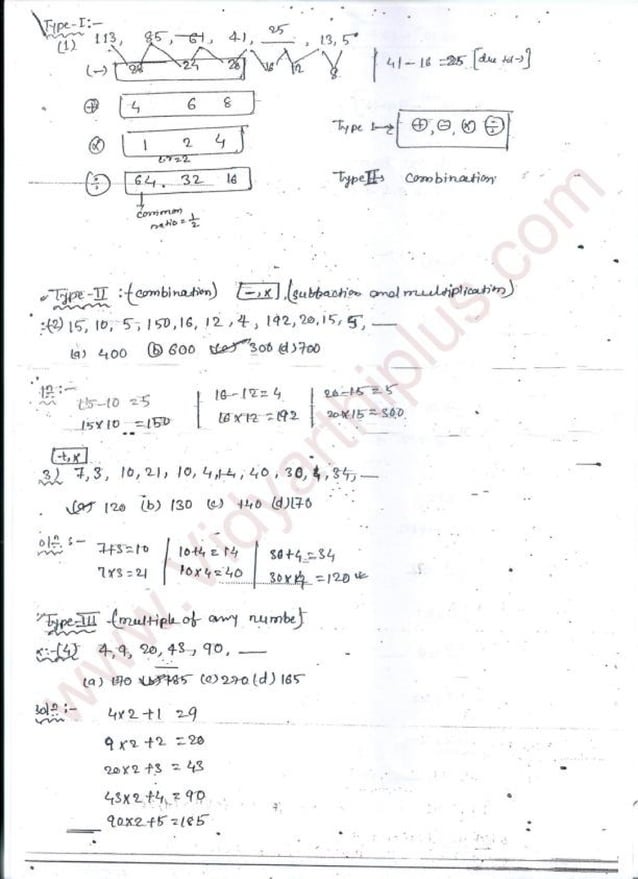 Type-I:-
(1) 113, 85, 61, 41, 25, 13, 5
(-) 28 24 20 16 12 8 | 41-16=25
(+) 4 6 8
(x) 1 2 4 Type I→ (+), (-), (x) (÷)
(÷) 64. 32 16 Type II→ Combination
common
ratio=1/2
Type-II :- (combination) [-,x], (subtraction and multiplication)
(2) 15, 10, 5, 150, 16, 12, 4, 192, 20, 15, 5, __
(a) 400 (b) 600 300 (d) 700
15-10=5 | 16-12=4 | 20-15=5
15x10 =150 | 16x12=192 | 20x15=300
+,x
3) 7, 3, 10, 21, 10, 4, 14, 40, 30, 4, 34, __
120 (b) 130 (c) 140 (d) 170
oln :- 7+3=10 | 10+4=14 | 30+4=34
7x3=21 | 10x4=40 | 30x4=120
Type-III -(multiple of any number)
(4) 4, 9, 20, 43, 90, __
(a) 170 (b) 185 (c) 270 (d) 165
soln :- 4x2+1 = 9
9x2+2=20
20x2+3=43
43x2+4=90
90x2+5=185
www.vidyarthiplus.com